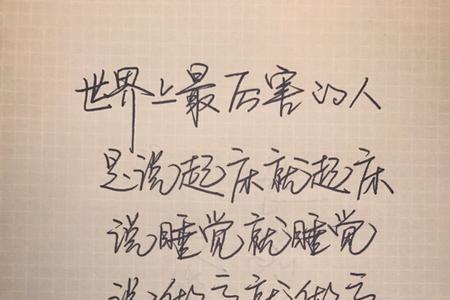 世界上最厉害的人
是说起床就起床
说睡觉就睡觉
说做就做